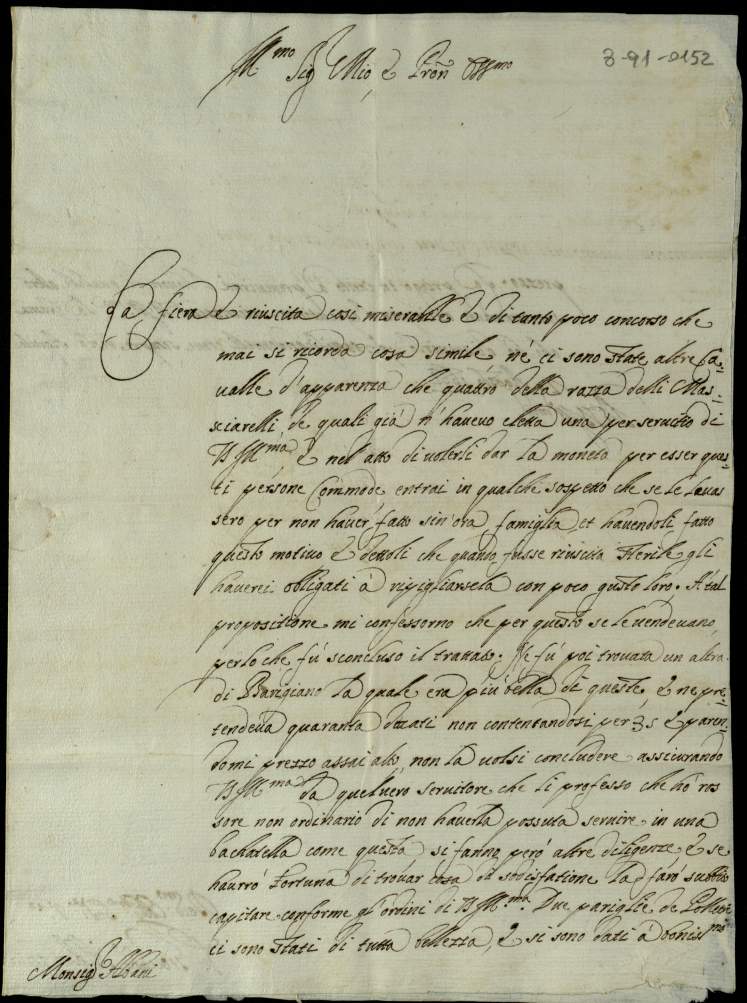 Ill.mo Sig Mio, e Pron Oss.mo
3-91-0152
La fiera è riuscita così miserabile e di tanto poco concorso che
mai si ricorda cosa simile né ci sono state altre Ca-
valle d'apparenza che quattro della razza delli Mas-
sciarelli de quali già n'havevo eletta una per servitio di
VS Ill.ma, e nel atto di volerli dar la moneta per esser ques-
ti persone Commode entrai in qualche sospetto che se le levas
sero per non haver fatto sin'ora famiglia et havendoli fatto
questo motivo e dettoli che quando fusse riuscita sterile gli
haverei obligati à ripigliarsela con poco gusto loro. A tal
propositione mi confessorno che per questo se le vendevano,
perloche fù sconcluso il trattato. Ne fù poi trovata un altra
di Barigiano la quale era più bella di queste, e ne pre-
tendeva quaranta ducati non contentandosi per 35 e paren-
domi prezzo assai alto, non la volsi concludere assicurando
VS Ill.ma da quel vero servitore che li professo che hò ros
sore non ordinario di non haverla possuta servire in una
bachatella come questa si fanno però altre diligenze e se
haurrò fortuna di trovar cosa di sodisfatione la farò subbito
capitare conforme gl'ordini di VS Ill.ma. Due pariglie de Polletri
ci sono stati di tutta bellezza, e si sono dati à boniss.mo
Monsig.r Albani